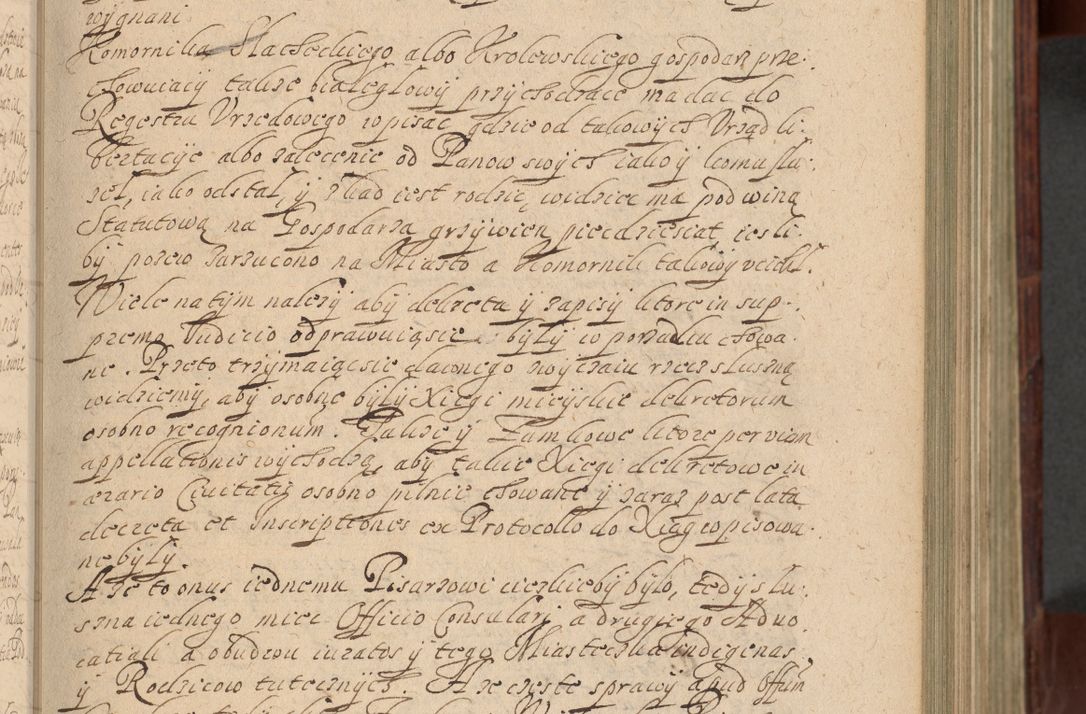 wÿgnani
Komornika Slacheckiego albo Krolewskiego gospodarz prze-
chowuiacÿ takze białegłowÿ przÿchodzace ma dac do
Regestru Vrzedowego wpisac gdzie od takowÿch Vrząd li-
bertacÿe albo zalecenie od Panow swÿch iako ÿ komu słu-
zeł, iako odstał, ÿ zkąd iest rodzic, widziec ma pod winą
Statutową na Gospodarza grzÿwien piecdziesiat iesli-
bÿ pozew zarzucono na Miasto a Komornik takowÿ vciekł.
Wiele na tÿm nalezÿ abÿ dekreta ÿ zapisÿ ktore in sup-
premo Iudicio odprawuiąsie bÿłÿ w porządku chowa-
ne. Przeto trzÿmaiącsie dawnego zwÿczaiu rzecz słuszną
widziemÿ, abÿ osobne bÿłÿ Xiegi mieÿskie dekretorum
osobno recognionum. Takze ÿ Zamkowe ktore per viam
appellationis wÿchodzą, abÿ takie Xiegi dekretowe in
ærario Ciuitatis osobno pilnie chowane ÿ zaraz post lata
decreta et Inscriptiones ex Protocollo do Xiąg wpisowa-
ne bÿłÿ.
A ze to onus iednemu Pisarzowi cieszkie bÿ bÿło, tedÿ słu-
szna iednego miec Officio Consulari a drugiego Aduo-
catiali a obudwu iuratos ÿ tego Miasteczka indigenas
ÿ Rodzicow tutecznÿch. A ze czeste sprawÿ apud Offum